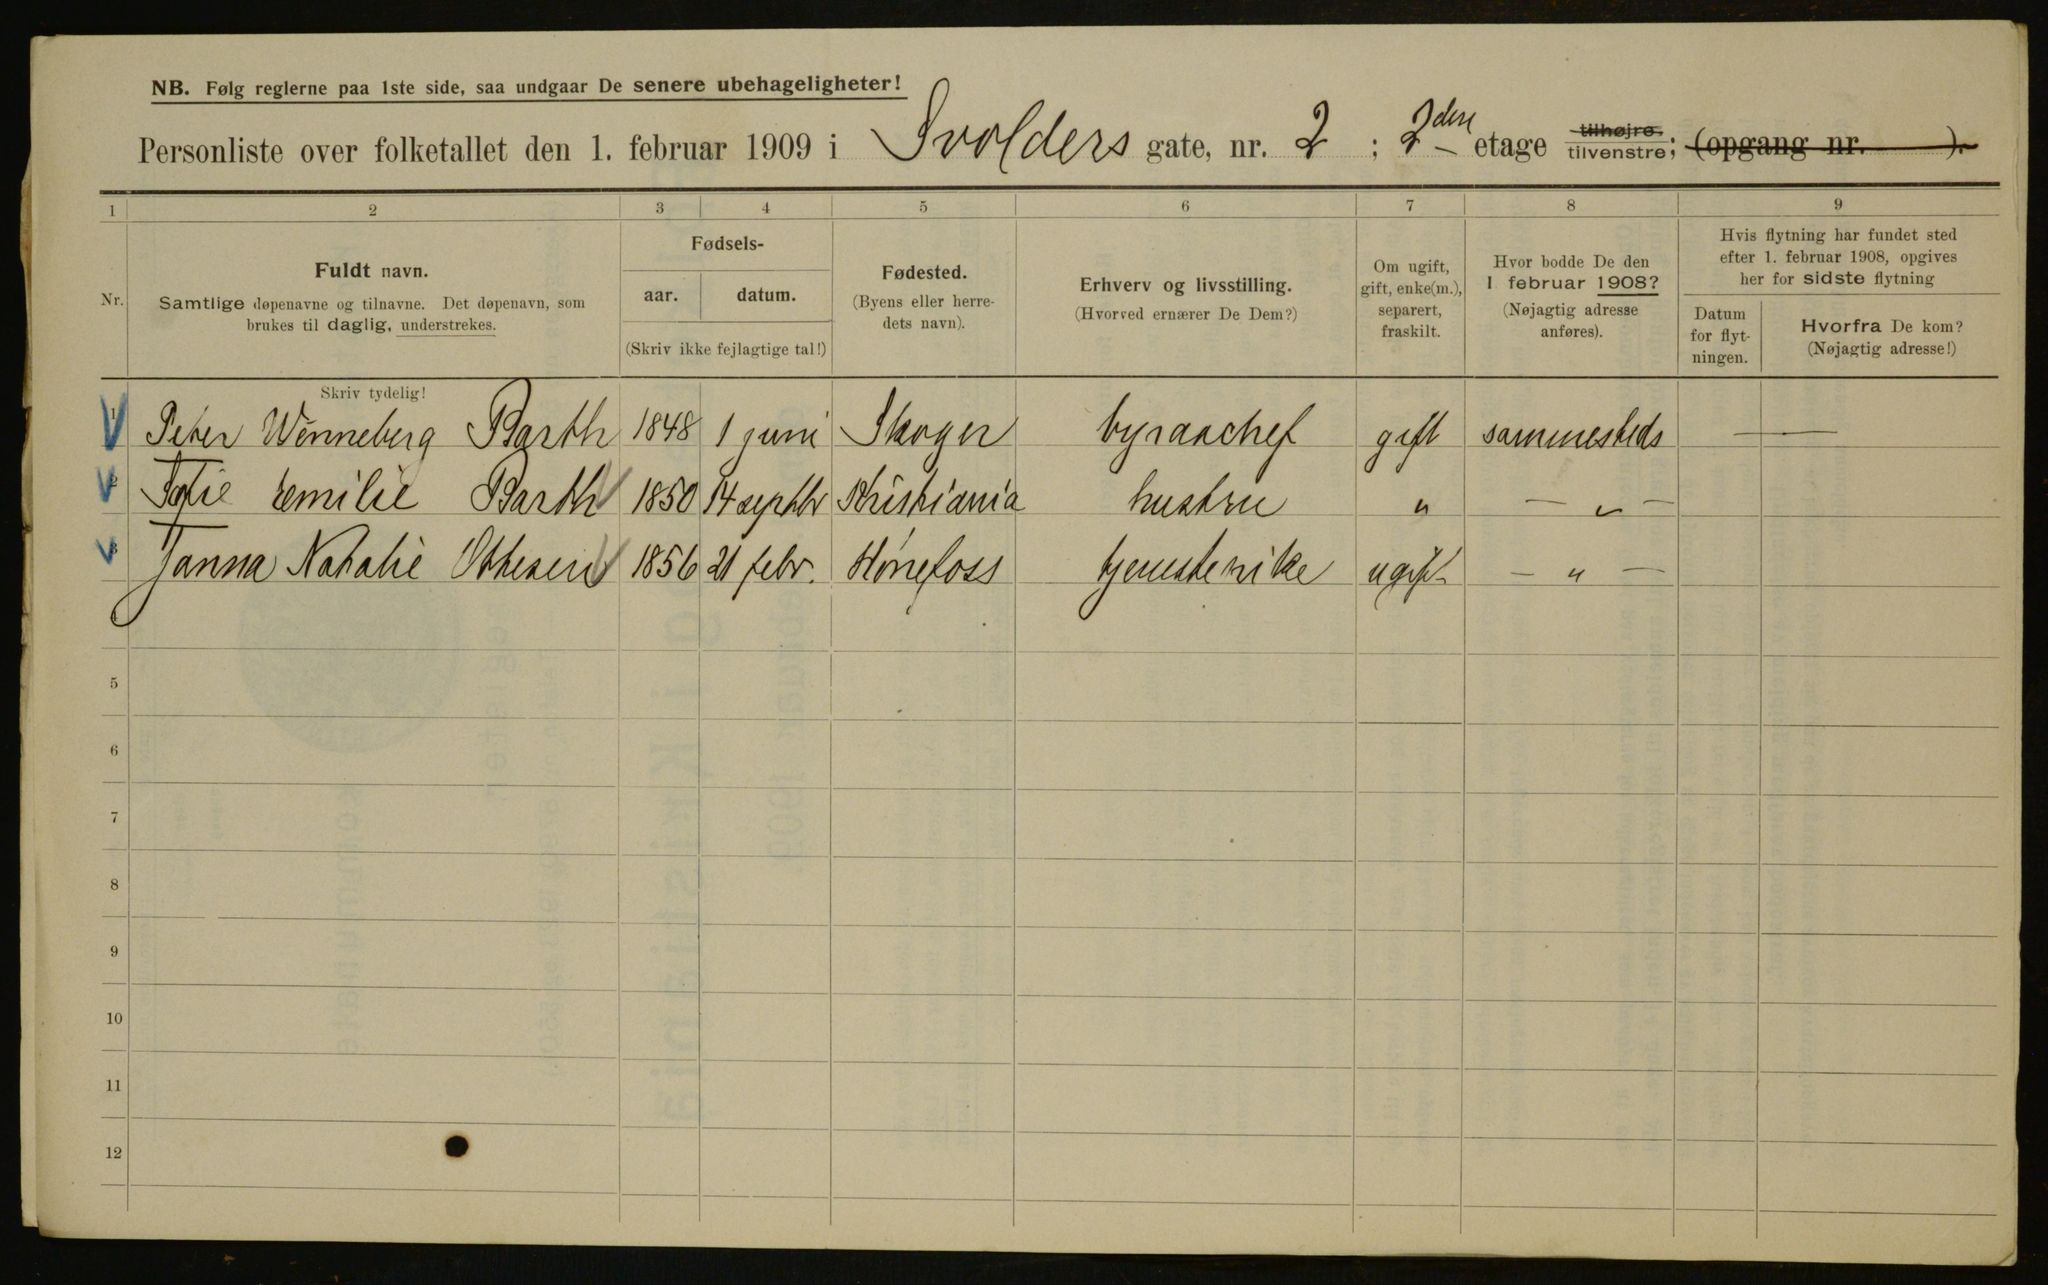 NB. Følg reglerne paa 1ste side, saa undgaar De senere ubehageligheter!
Personliste over folketallet den 1. februar 1909 i Svolders gate, nr. 2 ; 2den etage tilhøjre, tilvenstre; (opgang nr. ).
1 2 3 4 5 6 7 8 9
Nr.
Fuldt navn.
Samtlige døpenavne og tilnavne. Det døpenavn, som
brukes til daglig, understrekes.
Fødsels-
aar. datum.
(Skriv ikke fejlagtige tal!)
Fødested.
(Byens eller herre-
dets navn).
Erhverv og livsstilling.
(Hvorved ernærer De Dem?)
Om ugift,
gift, enke(m.),
separert,
fraskilt.
Hvor bodde De den
1 februar 1908?
(Nøjagtig adresse
anføres).
Hvis flytning har fundet sted
efter 1. februar 1908, opgives
her for sidste flytning
Datum
for flyt-
ningen.
Hvorfra De kom?
(Nøjagtig adresse!)
Skriv tydelig!
1 Peter Wenneberg Barth 1848 1 juni Skoger byraachef gift sammesteds —
2 Sofie Emilie Barth 1850 14 septbr Kristiania hustru " — " —
3 Janna Natalie Ottesen 1856 21 febr. Hønefoss tjenestepike ugift — " —
5
6
7
8
9
10
11
12